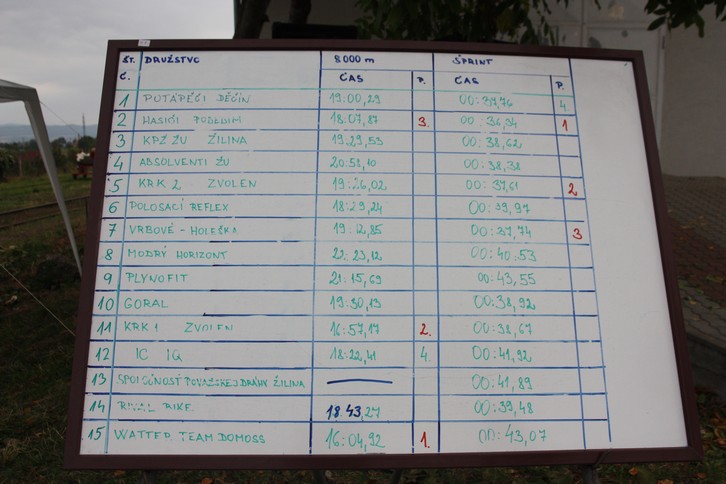 ŠT. DRUŽSTVO 8000 m ŠPRINT
Č. ČAS P. ČAS P.
1 POTÁPĚČI DĚČÍN 19:00,29 00:37,76 4.
2 HASIČI POBEDIM 18:07,87 3. 00:36,34 1
3 KPŽ ŽU ŽILINA 19:29,53 00:38,62
4 ABSOLVENTI ŽU 20:58,10 00:38,38
5 KRK 2 ZVOLEN 19:26,02 00:37,61 2
6 POLOSACÍ REFLEX 18:29,24 00:39,97
7 VRBOVÉ - HOLEŠKA 19:12,85 00:37,74 3
8 MODRÝ HORIZONT 22:23,12 00:40,53
9 PLYNOFIT 21:15,69 00:43,55
10 GORAL 19:30,13 00:38,92
11 KRK 1 ZVOLEN 16:57,17 2. 00:38,67
12 IC IQ 18:22,41 4. 00:41,92
13 SPOLOČNOSŤ POVAŽSKEJ DRÁHY ŽILINA 00:41,89
14 BIKE 18:43,27 00:39,48
15 WATTER TEAM DOMOSS 16:04,92 1. 00:43,07